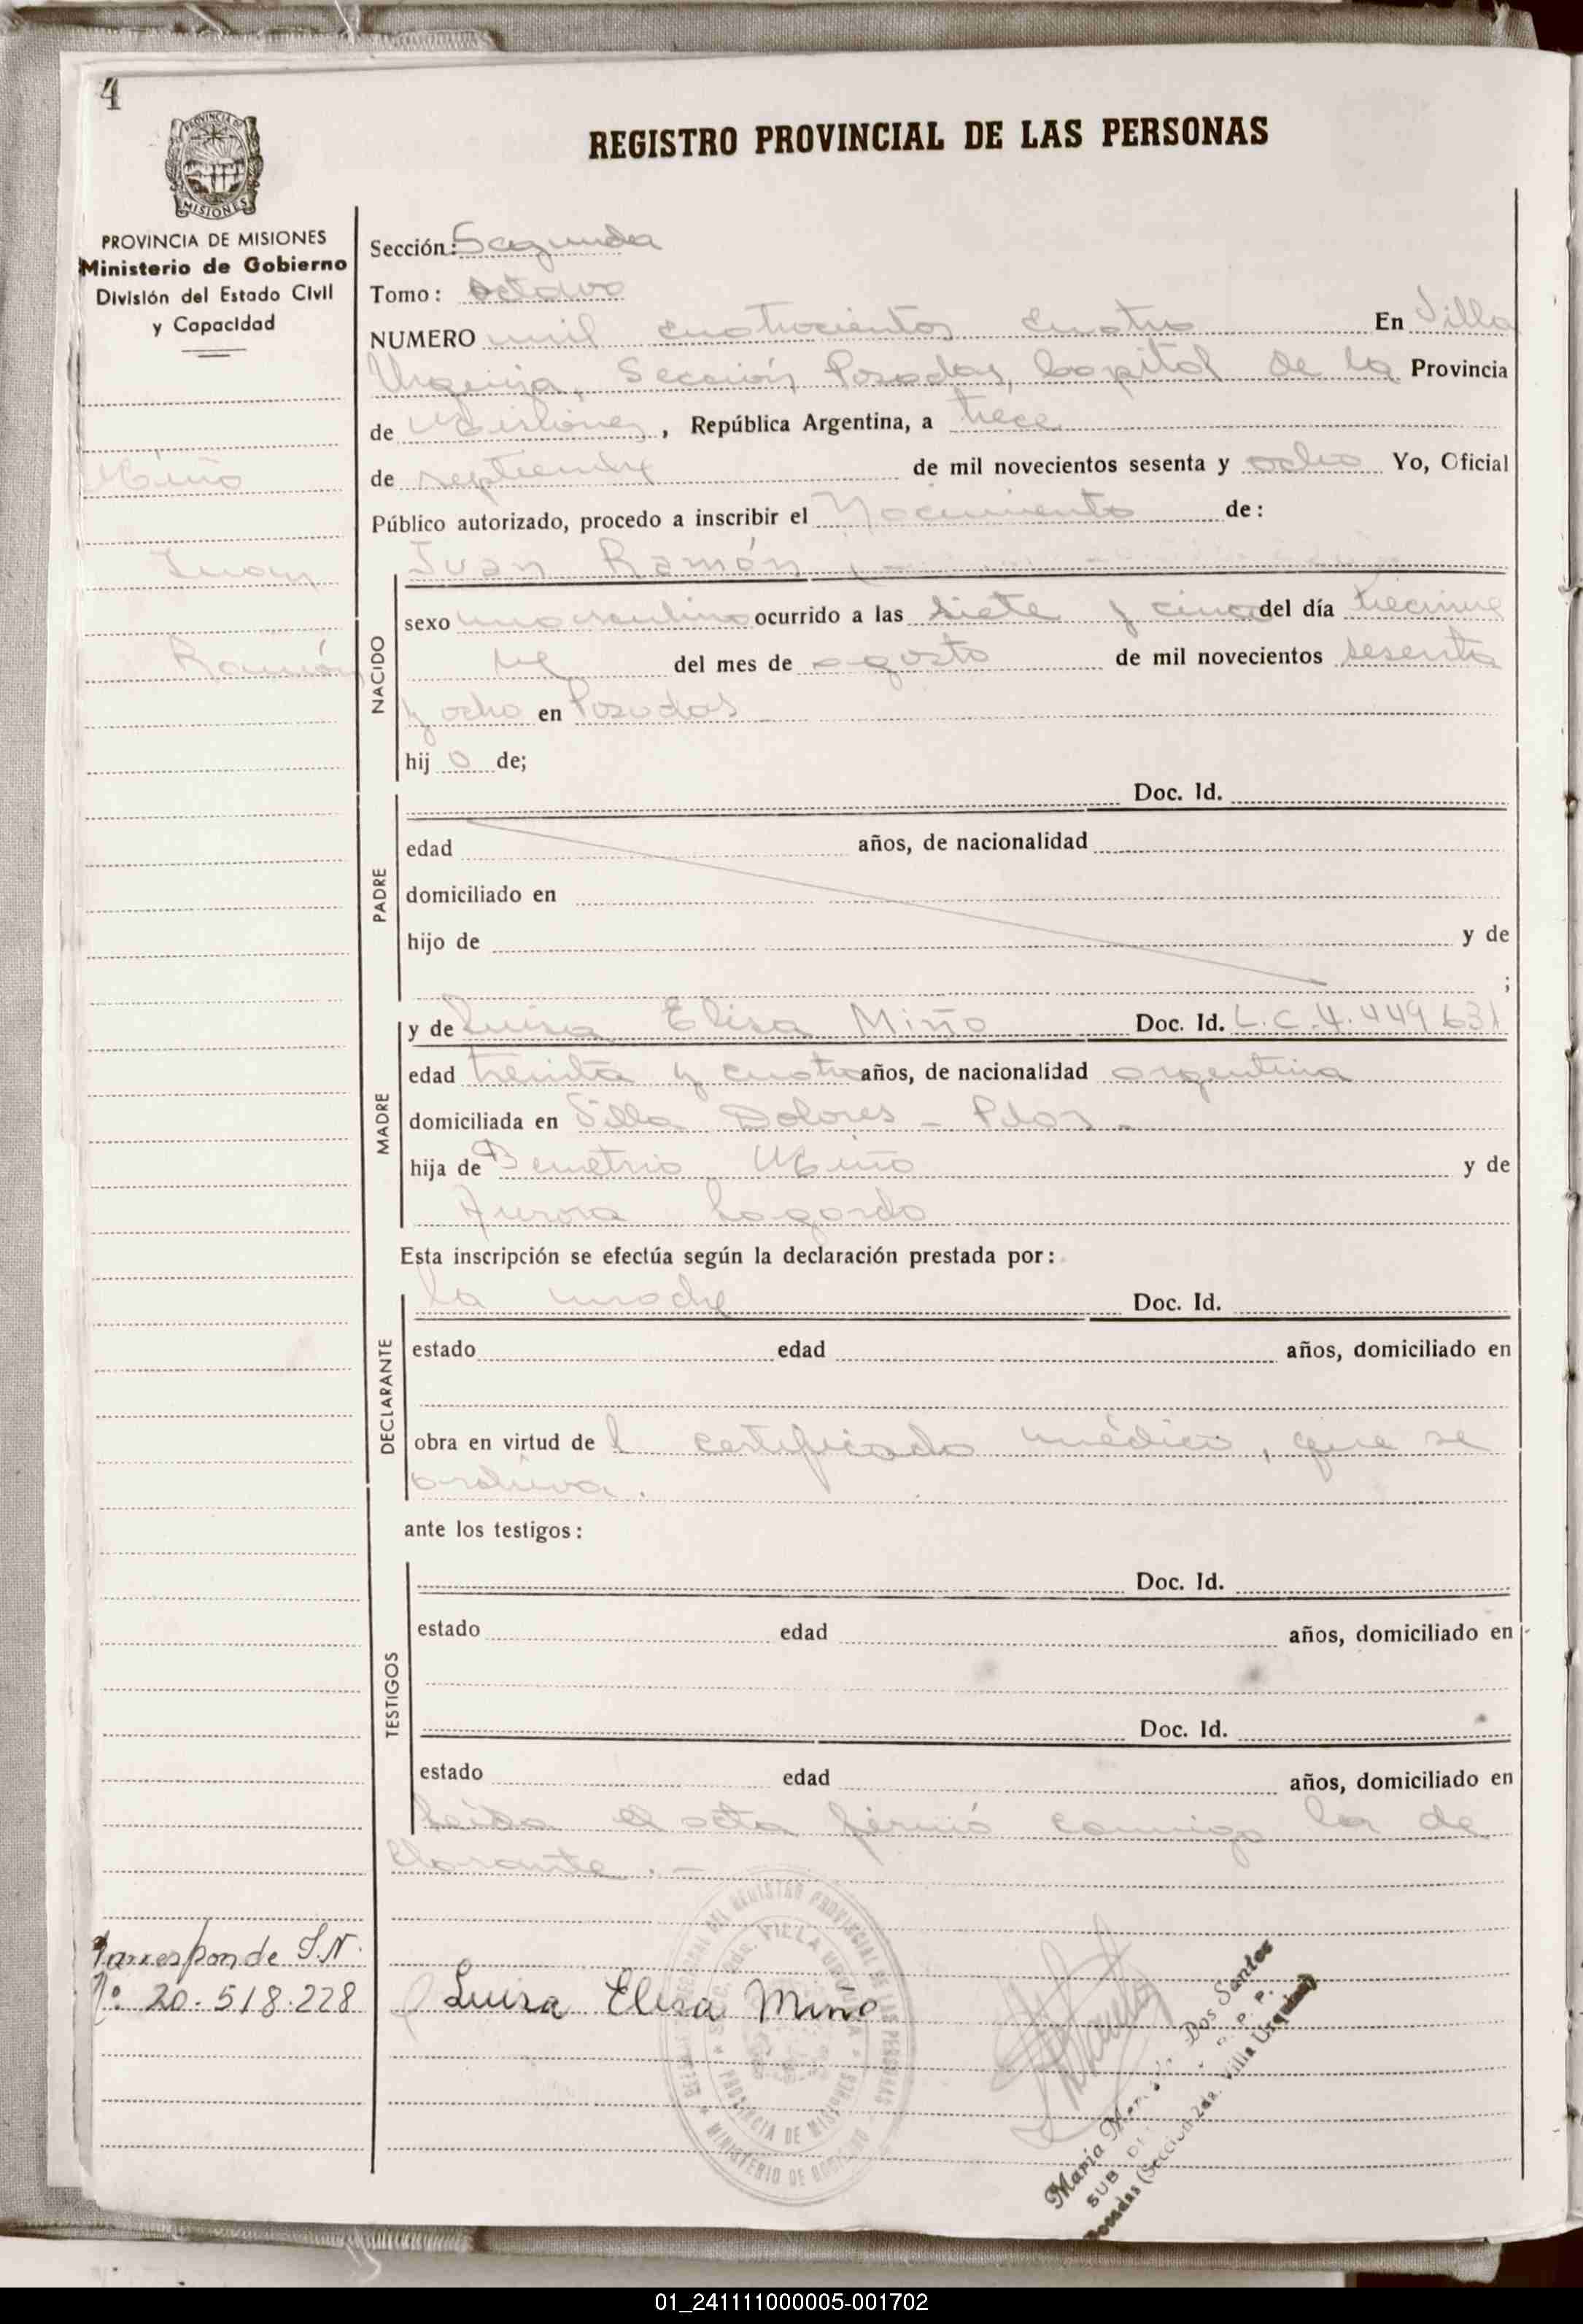 4
PROVINCIA DE MISIONES
REGISTRO PROVINCIAL DE LAS PERSONAS
PROVINCIA DE MISIONES
Ministerio de Gobierno
División del Estado Civil
y Capacidad
Miño
Juan
Ramón
Sección: Segunda
Tomo: Octavo
NUMERO mil cuatrocientos cuatro En Villa
Urquiza, Sección Posadas, Capital de la Provincia
de Misiones, República Argentina, a trece
de septiembre de mil novecientos sesenta y ocho Yo, Oficial
Público autorizado, procedo a inscribir el Nacimiento de:
Juan Ramón
NACIDO
sexo masculino ocurrido a las siete y cinco del día diecinue
ve del mes de agosto de mil novecientos sesenta
y ocho en Posadas
hij o de;
PADRE
Doc. Id.
edad años, de nacionalidad
domiciliado en
hijo de y de
;
MADRE
y de Luisa Elisa Miño Doc. Id. L.C. 4.449.631
edad treinta y cuatro años, de nacionalidad argentina
domiciliada en Villa Dolores - Pdas -
hija de Demetrio Miño y de
Aurora
Esta inscripción se efectúa según la declaración prestada por:
DECLARANTE
la madre Doc. Id.
estado edad años, domiciliado en
obra en virtud de l certificado médico, que se
archiva.
ante los testigos:
TESTIGOS
Doc. Id.
estado edad años, domiciliado en
Doc. Id.
estado edad años, domiciliado en
Leída el acta firmó conmigo la de
clarante. -
Corresponde I.N.
Nº 20.518.228
Luisa Elisa Miño
REGISTRO PROVINCIAL DE LAS PERSONAS
VILLA URQUIZA
PROVINCIA DE MISIONES
MINISTERIO DE GOBIERNO
María Dos Santos
SUB
Posadas (Sección 2da. Villa Urquiza)
01_241111000005-001702